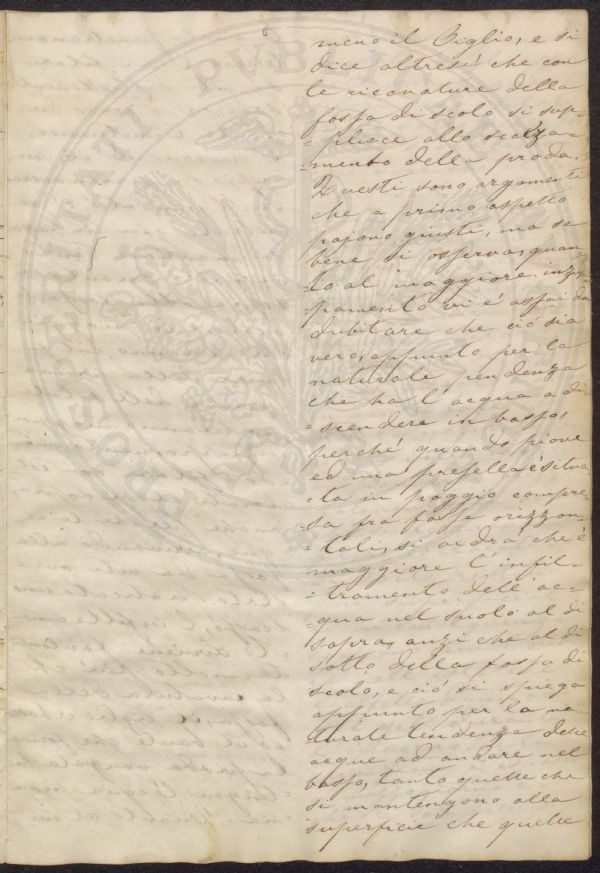 meno il Ciglio, e si
dice altresì che con
le ricavature della
fossa di scolo si sup-
-plisce allo scalza-
-mento della proda.
Questi sono argomenti
che a primo aspetto
pajono giusti, ma se
bene si osserva, quan-
-to al maggiore inzup-
-pamento vi è assai da
dubitare che ciò sia
vero, appunto per la
naturale pendenza
che ha l'acqua a di-
-scendere in basso,
perché quando piove
ed una presella è situa
-ta in poggio compre-
-sa fra fosse orizzon-
-tali, si vedrà che è
maggiore l'infil-
-tramento dell'ac-
-qua nel suolo al di
sopra, anzi che al di
sotto della fossa di
scolo, e ciò si spiega
appunto per la na-
-turale tendenza delle
acque ad andare nel
basso, tanto quelle che
si mantengono alla
superficie che quelle
PROSPERITATI PUBLICAE